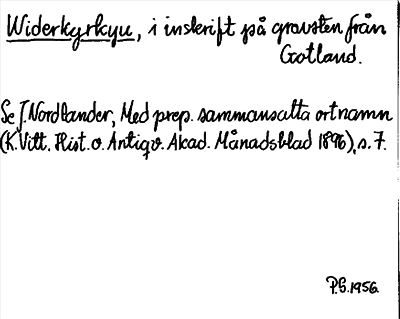 Widerkyrkyu, i inskrift på gravsten från
Gotland.
Se J. Nordlander, Med prep. sammansatta ortnamn
(K. Vitt. Hist. o. Antiqv. Akad. Månadsblad 1896), s. 7.
P.G. 1956.